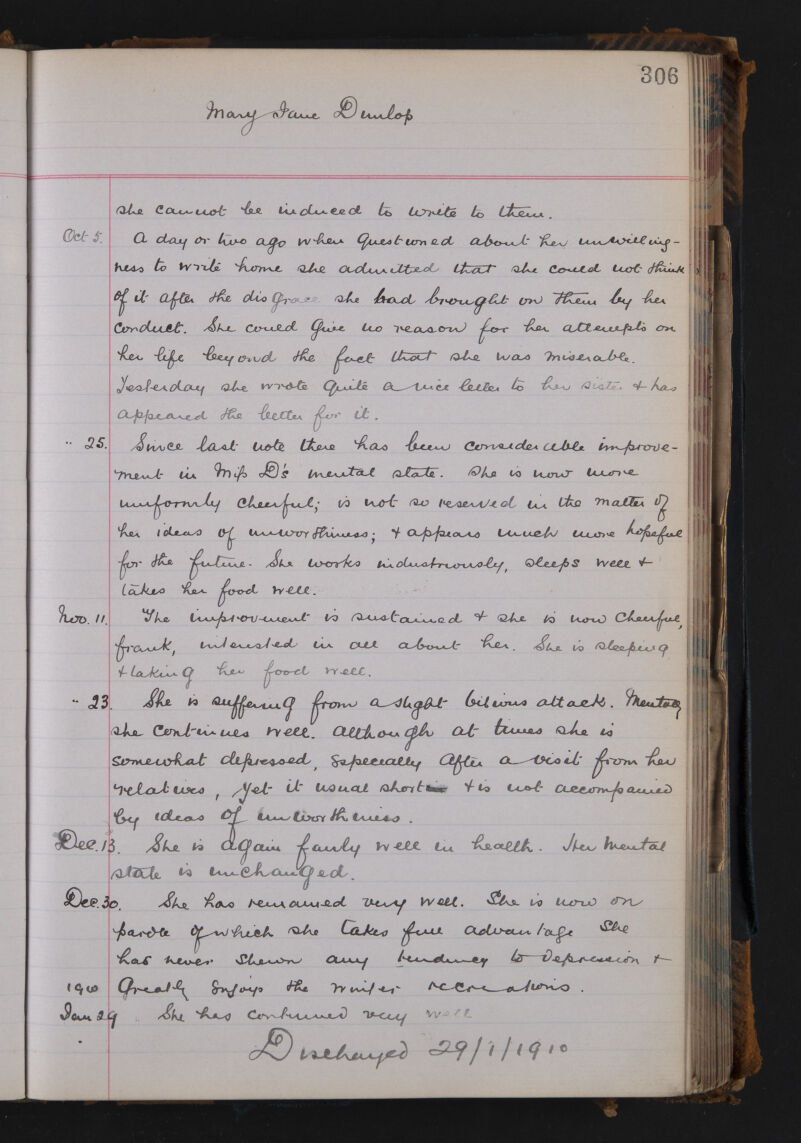 306
Mary Jane Dunlop
she cannot be induced to write to them.
Oct 5. A day or two ago when questioned about her unwilling-
ness to write home she admitted that she could not think
of it after the disgrace she had brought on them by her
conduct. She could give no reason for her attempts on
her life beyond the fact that she was miserable.
Yesterday she wrote quite a nice letter to her sister & has
appeared the better for it.
" 25. Since last note there has been considerable improve-
ment in Miss D's mental state. She is now more
uniformly cheerful; is not so reserved in the matter of
her ideas of unworthiness; & appears much more hopeful
for the future. She works industriously, sleeps well &
takes her food well.
Nov. 11. The improvement is sustained & she is now cheerful,
frank, interested in all about her. She is sleeping
& taking her food well.
" 23. She is suffering from a slight bilious attack. Mentally
she continues well. Although at times she is
somewhat depressed, especially after a visit from her
relatives, yet it usual short & is not accompanied
by ideas of unworthiness.
Dec. 13. She is again fairly well in health. Her mental
state is unchanged.
Dec. 30. She has remained very well. She is now on
parole of which she takes full advantage She
has never shewn any tendency to depression &
1910 Greatly enjoys the winter recreations.
Jan 29 She has continued very well
Discharged 29/1/1910